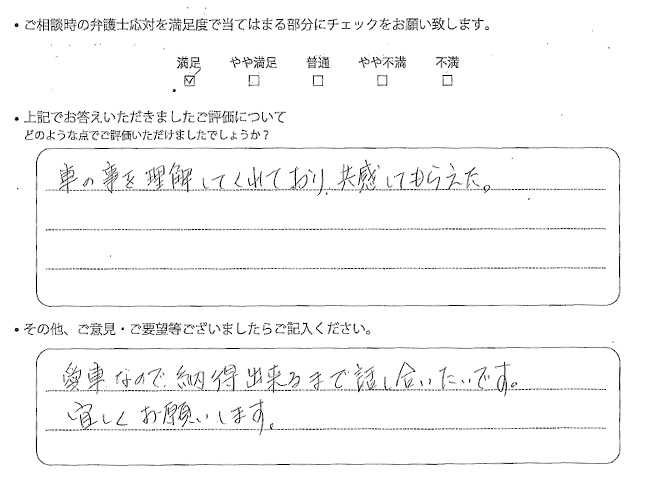 ・ご相談時の弁護士応対を満足度で当てはまる部分にチェックをお願い致します。
満足 やや満足 普通 やや不満 不満
☑ ☐ ☐ ☐ ☐
・上記でお答えいただきましたご評価について
どのような点でご評価いただけましたでしょうか？
車の事を理解してくれており、共感してもらえた。
・その他、ご意見・ご要望等ございましたらご記入ください。
愛車なので、納得出来るまで話し合いたいです。
宜しくお願いします。